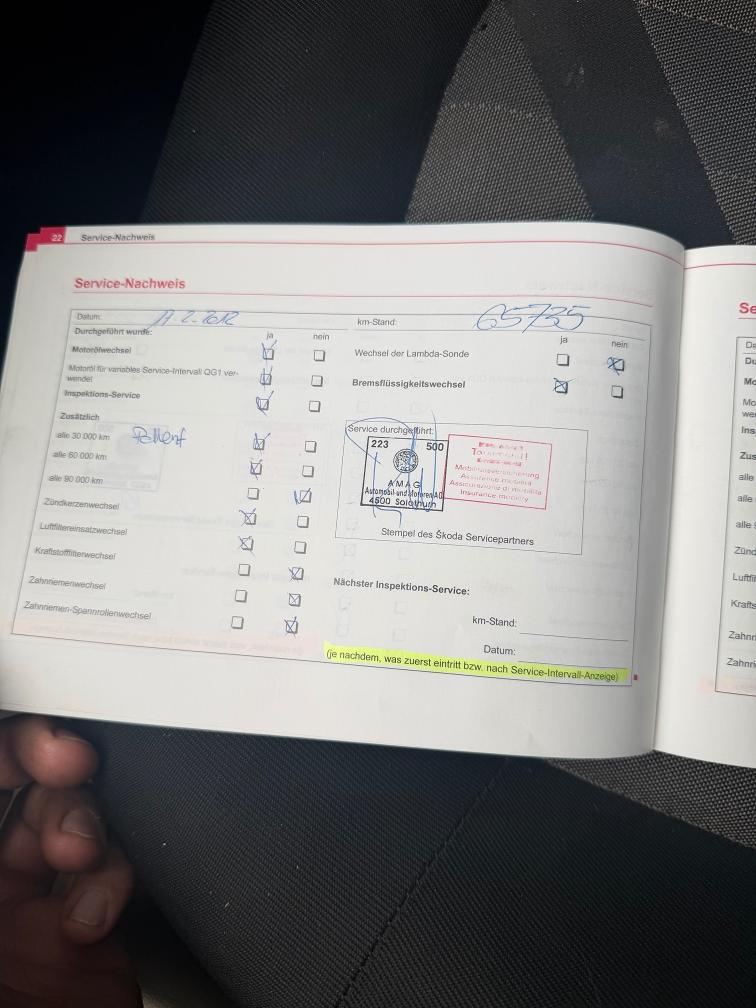 22 Service-Nachweis
Service-Nachweis
Datum:
km-Stand: 65735
Durchgeführt wurde: ja nein
Motorölwechsel
Motoröl für variables Service-Intervall QG1 ver-
wendet
Inspektions-Service
Zusätzlich
alle 30 000 km
alle 60 000 km
alle 90 000 km
Zündkerzenwechsel
Luftfiltereinsatzwechsel
Kraftstofffilterwechsel
Zahnriemenwechsel
Zahnriemen-Spannrollenwechsel
ja nein
Wechsel der Lambda-Sonde
Bremsflüssigkeitswechsel
Service durchgeführt:
223 500
AMAG
Automobil- und Motoren AG
4500 Solothurn
Mobilitätsversicherung
Assurance mobilité
Assicurazione di mobilità
Insurance mobility
Stempel des Škoda Servicepartners
Nächster Inspektions-Service:
km-Stand:
Datum:
(je nachdem, was zuerst eintritt bzw. nach Service-Intervall-Anzeige)
Se
Da
Du
Mo
Mo
we
Ins
Zus
alle
alle
alle
Zünd
Luftfi
Krafts
Zahnr
Zahnri